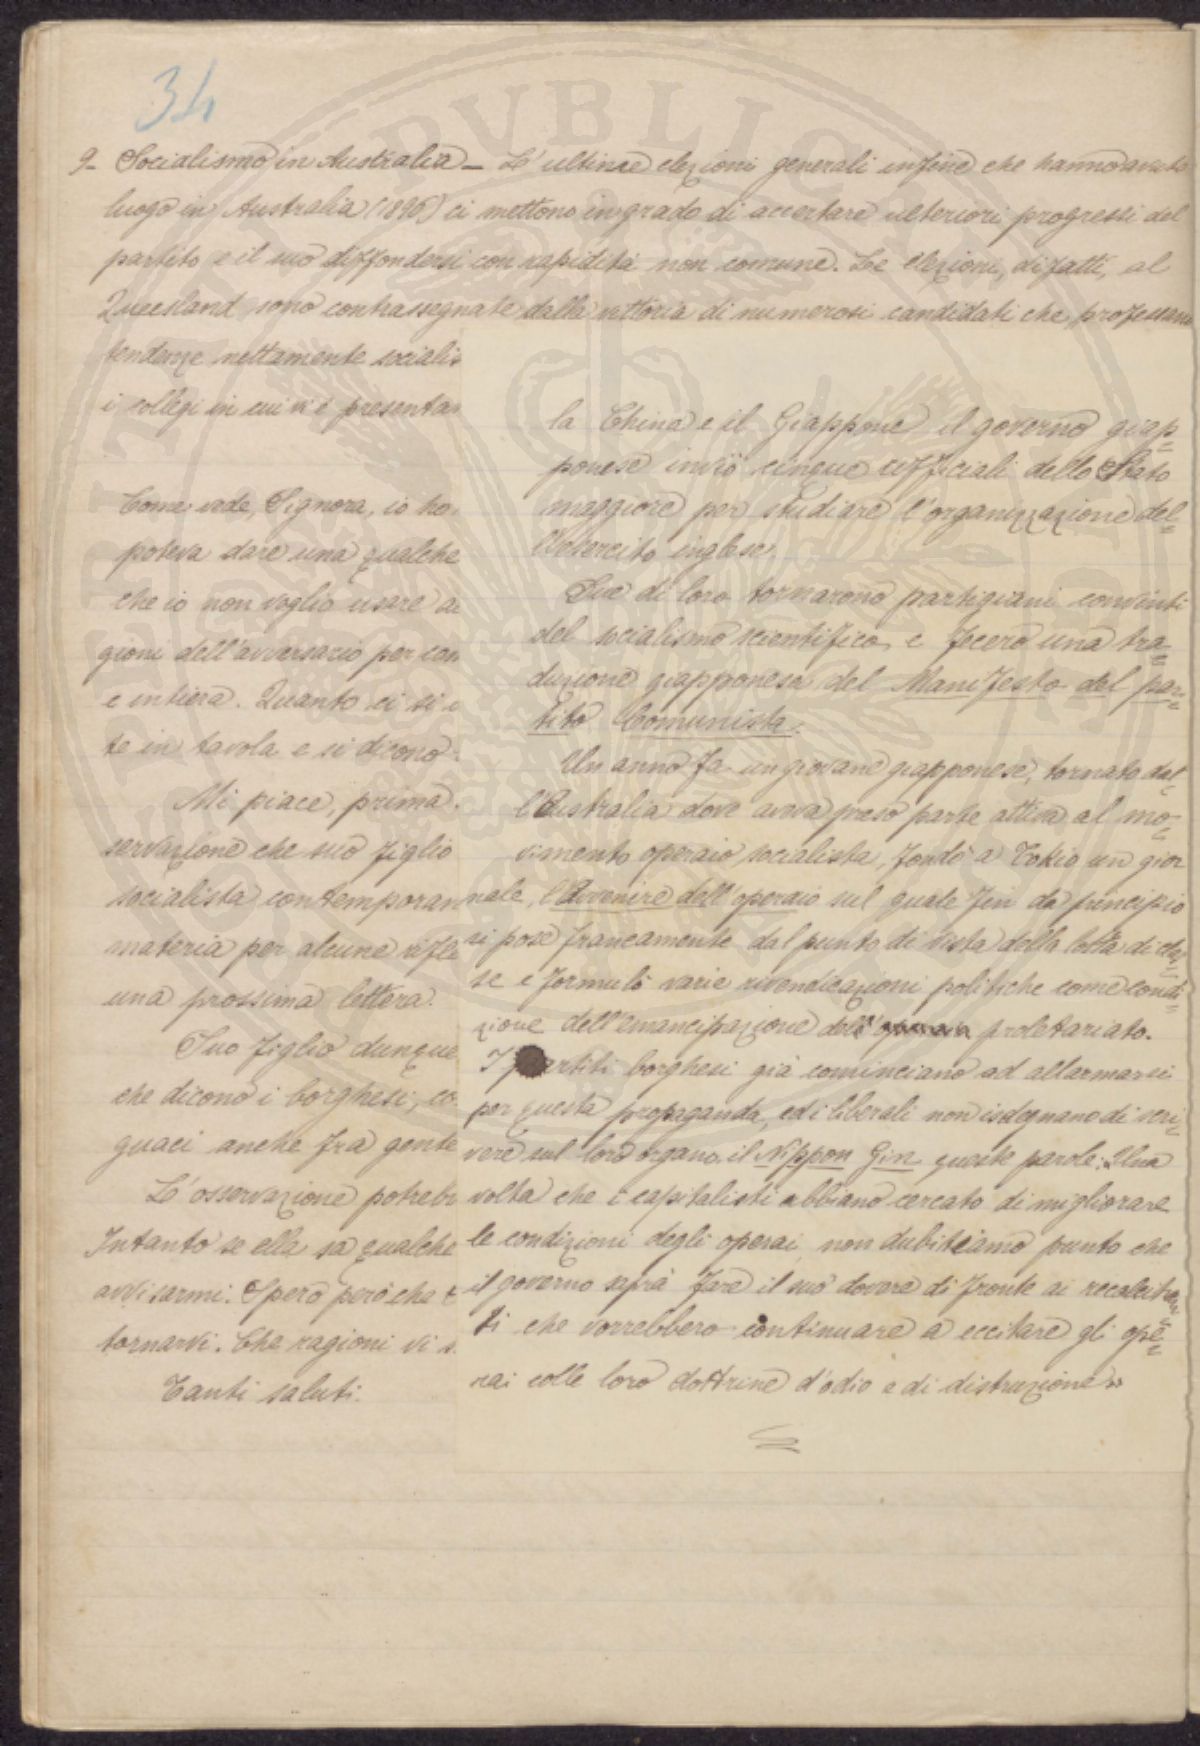 34
9- Socialismo in Australia - Le ultime elezioni generali infine che hanno avuto
luogo in Australia (1896) ci mettono in grado di accertare ulteriori progressi del
partito e il suo diffondersi con rapidità non comune. Le elezioni, difatti, al
Queesland sono contrassegnate dalla vittoria di numerosi candidati che professano
tendenze nettamente socialis
i collegi in cui vi è presentan
Come vede, Signora, io ho
poteva dare una qualche
che io non voglio usare a
gioni dell'avversario per con
e intiera. Quanto ci si
te in tavola e si dicono
Mi piace, prima
servazione che suo figlio
socialista contemporan
materia per alcune rifle
una prossima lettera.
Suo figlio dunque
che dicono i borghesi, co
guaci anche fra gente
L'osservazione potreb
Intanto se ella sa qualche
avvisarmi. Spero però che
tornarvi. Che ragioni vi
Tanti saluti.
la China e il Giappone il governo giap=
ponese inviò cinque ufficiali dello Stato
maggiore per studiare l'organizzazione del=
l'esercito inglese.
Due di loro tornarono partigiani convinti
del socialismo scientifico e fecero una tra=
duzione giapponese del Manifesto del par=
tito Comunista.
Un anno fa un giovane giapponese, tornato dal=
l'Australia dove aveva preso parte attiva al mo=
vimento operaio socialista, fondò a Tokio un gior
nale, l'Avvenire dell'operaio sul quale fin da principio
si pose francamente dal punto di vista della lotta di clas=
se e formulò varie rivendicazioni politiche come condi=
zione dell'emancipazione del proletariato.
I partiti borghesi già cominciano ad allarmarsi
per questa propaganda, ed i liberali non isdegnano di scri=
vere sul loro organo, il Nippon Gin, queste parole: Una
volta che i capitalisti abbiano cercato di migliorare
le condizioni degli operai, non dubitiamo punto che
il governo saprà fare il suo dovere di fronte ai recalcitran
ti che vorrebbero continuare a eccitare gli ope=
rai colle loro dottrine d'odio e di distruzione»